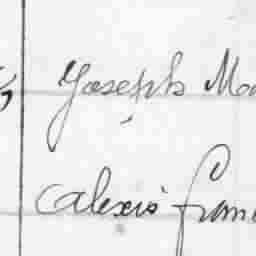 Joseph Ma
Alexis Franc